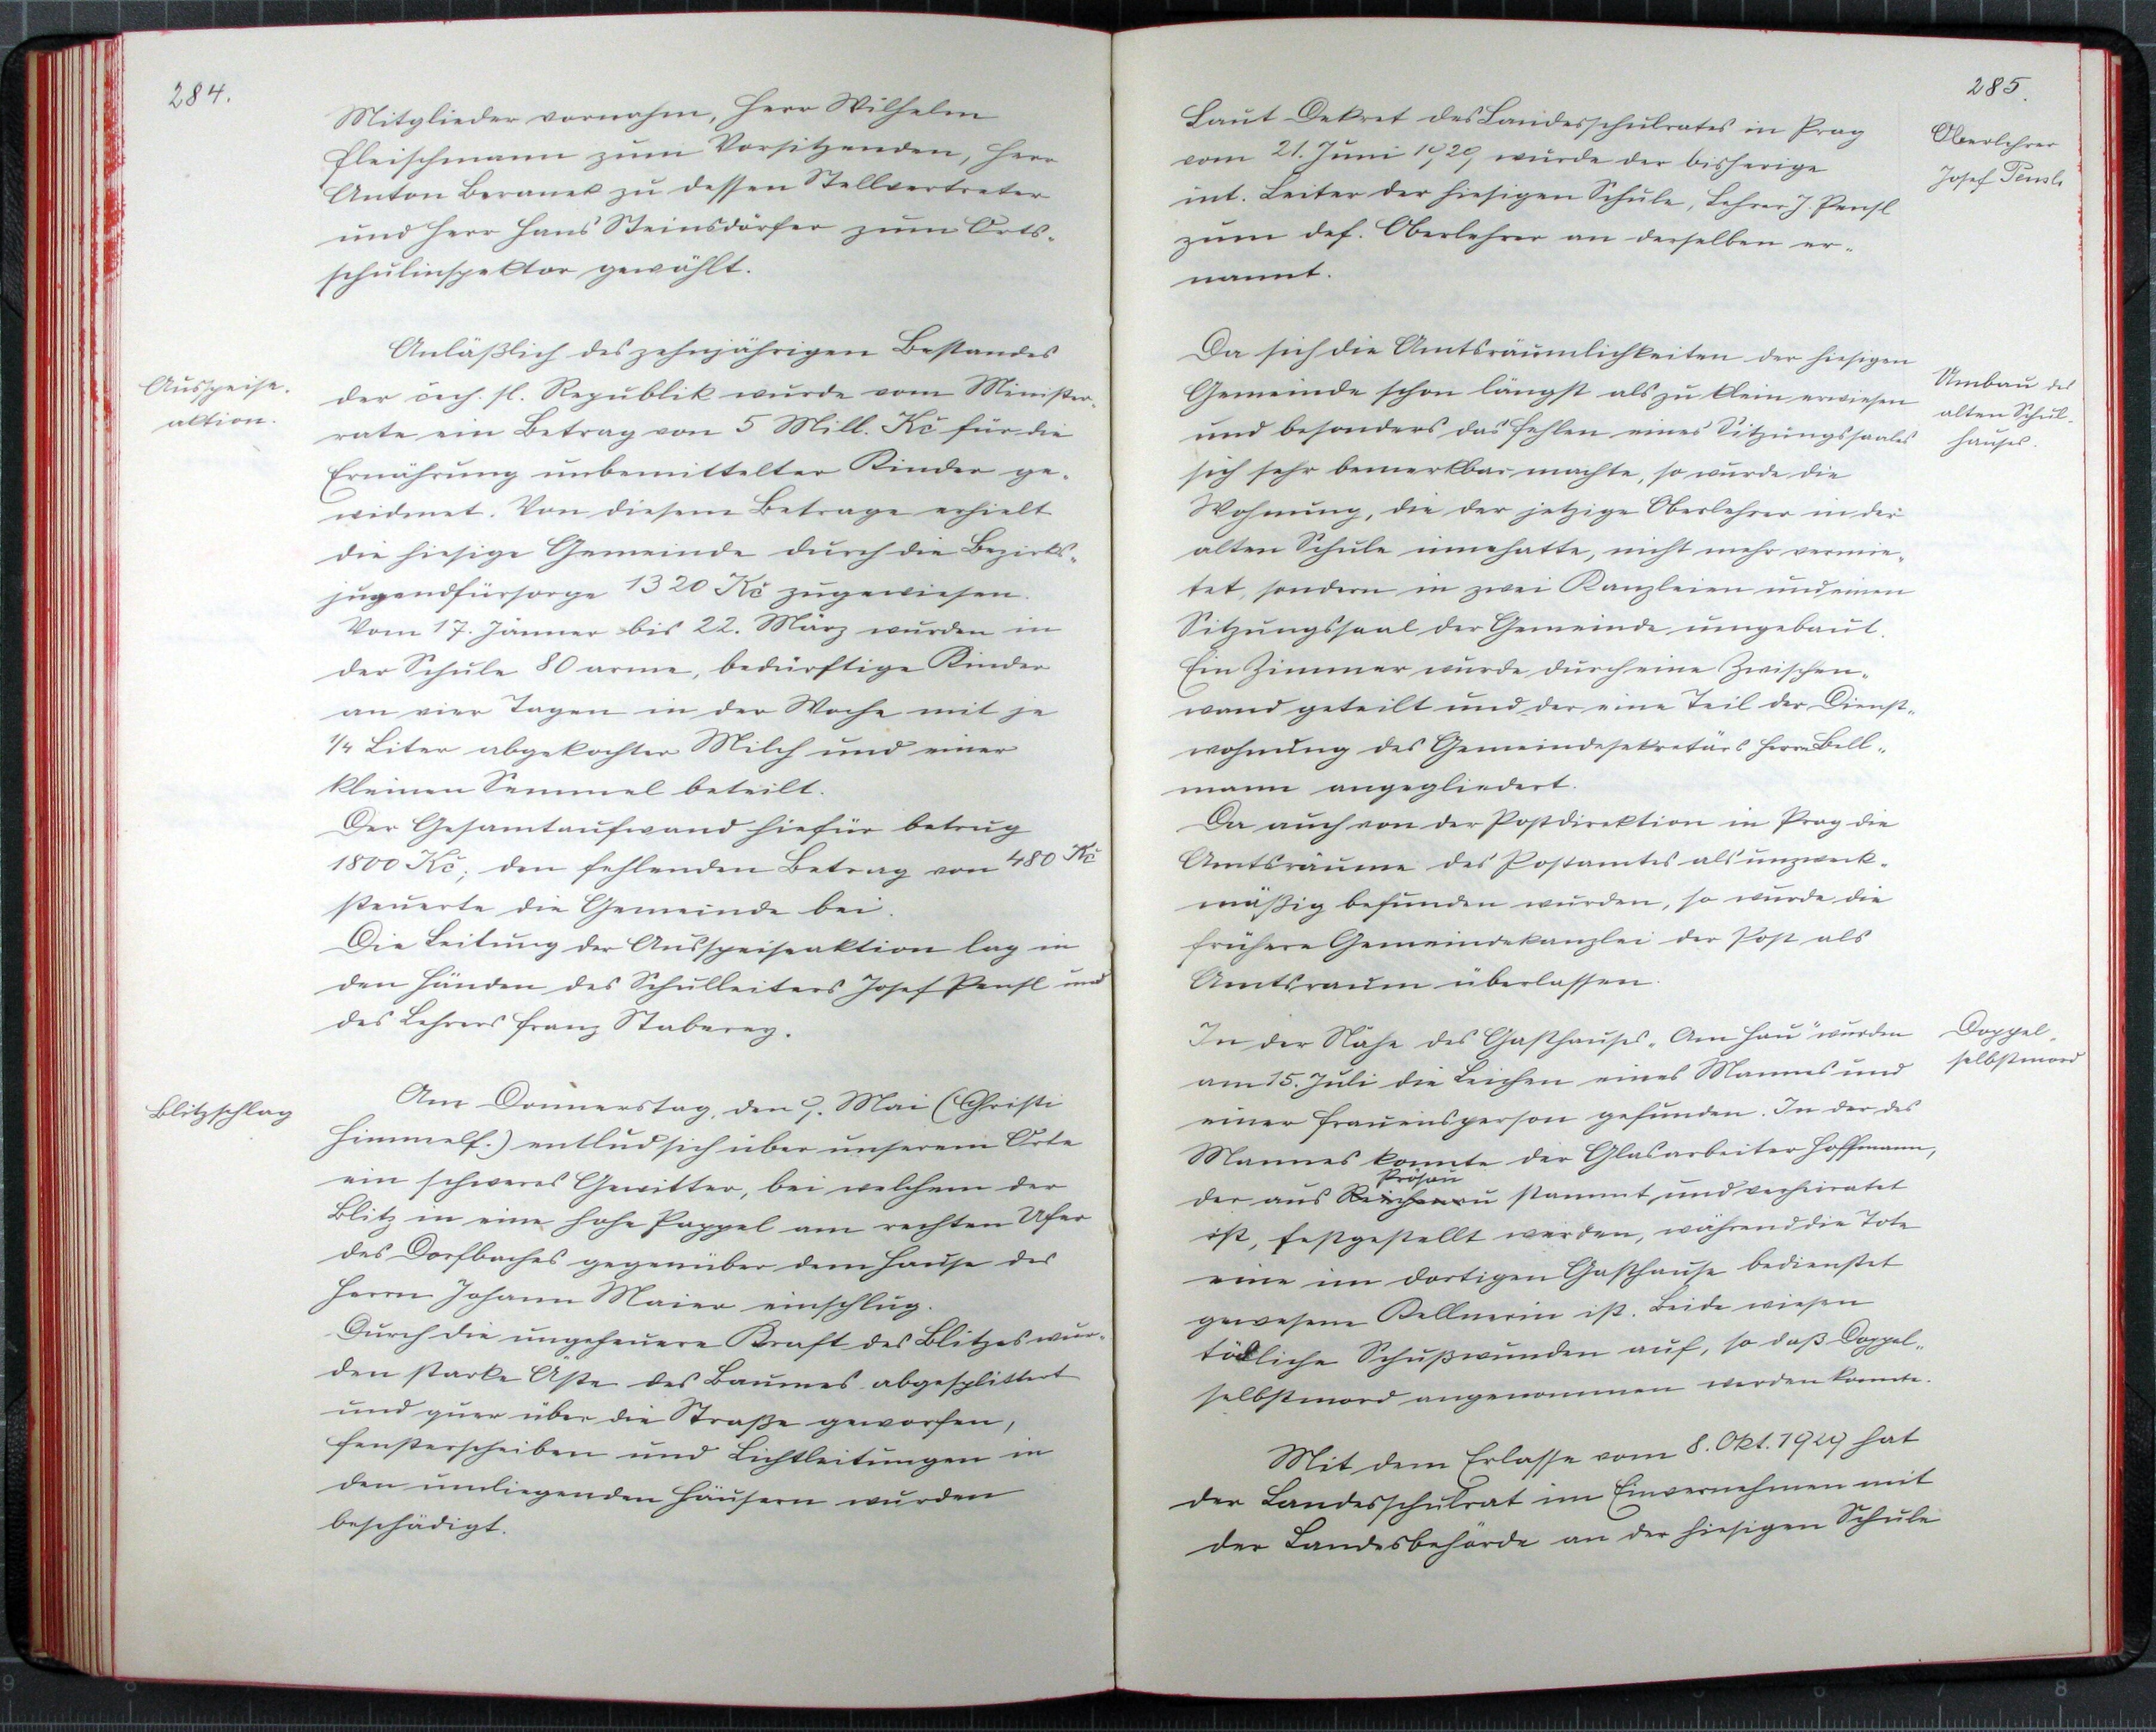 284.
Mitglieder vornahm, Herr Wilhelm
Fleischmann zum Vorsitzenden, Herr
Anton Beranek zu dessen Stellvertreter
und Herr Hans Steinsdörfer zum Orts-
schulinspektor gewählt.
Ausspeise-
aktion.
Anläßlich des zehnjährigen Bestandes
der čech. sl. Republik wurde vom Minister-
rate ein Betrag von 5 Mill. Kč für die
Ernährung unbemittelter Kinder ge-
widmet. Von diesem Betrage erhielt
die hiesige Gemeinde durch die Bezirks-
jugendfürsorge 1320 Kč zugewiesen.
Vom 17. Jänner bis 22. März wurden in
der Schule 80 arme, bedürftige Kinder
an vier Tagen in der Woche mit je
1/4 Liter abgekochter Milch und einer
kleinen Semmel beteilt.
Der Gesamtaufwand hiefür betrug
1800 Kč; den fehlenden Betrag von 480 Kč
steuerte die Gemeinde bei.
Die Leitung der Ausspeiseaktion lag in
den Händen des Schulleiters Josef Pensl und
des Lehrers Franz Staberey.
Blitzschlag
Am Donnerstag, den 9. Mai (Christi
Himmelf.) entlud sich über unserem Orte
ein schweres Gewitter, bei welchem der
Blitz in eine hohe Pappel am rechten Ufer
des Dorfbaches gegenüber dem Hause des
Herrn Johann Maier einschlug.
Durch die ungeheuere Kraft des Blitzes wur-
den starke Äste des Baumes abgesplittert
und quer über die Straße geworfen,
Fensterscheiben und Lichtleitungen in
den umliegenden Häusern wurden
beschädigt.
285.
Oberlehrer
Josef Pensl.
Laut Dekret des Landesschulrates in Prag
vom 21. Juni 1929 wurde der bisherige
int. Leiter der hiesigen Schule, Lehrer J. Pensl
zum def. Oberlehrer an derselben er-
nannt.
Umbau des
alten Schul-
hauses.
Da sich die Amtsräumlichkeiten der hiesigen
Gemeinde schon längst als zu klein erwiesen
und besonders das Fehlen eines Sitzungssaales
sich sehr bemerkbar machte, so wurde die
Wohnung, die der jetzige Oberlehrer in der
alten Schule innehatte, nicht mehr vermie-
tet, sondern in zwei Kanzleien und einen
Sitzungssaal der Gemeinde umgebaut.
Ein Zimmer wurde durch eine Zwischen-
wand geteilt und der eine Teil der Dienst-
wohnung des Gemeindesekretärs Herrn Bell-
mann angegliedert.
Da auch von der Postdirektion in Prag die
Amtsräume des Postamtes als unzweck-
mäßig befunden wurden, so wurde die
frühere Gemeindekanzlei der Post als
Amtsraum überlassen.
Doppel-
selbstmord
In der Nähe des Gasthauses „Am Hau" wurden
am 15. Juli die Leichen eines Mannes und
einer Frauensperson gefunden. In der des
Mannes konnte der Glasarbeiter Hoffmann,
Prosau
der aus Reichenau stammt und verheiratet
ist, festgestellt werden, während die Tote
eine im dortigen Gasthause bedienstet
gewesene Kellnerin ist. Beide wiesen
tödliche Schußwunden auf, so daß Doppel-
selbstmord angenommen werden konnte.
Mit dem Erlasse vom 8. Okt. 1929 hat
der Landesschulrat im Einvernehmen mit
der Landesbehörde an der hiesigen Schule